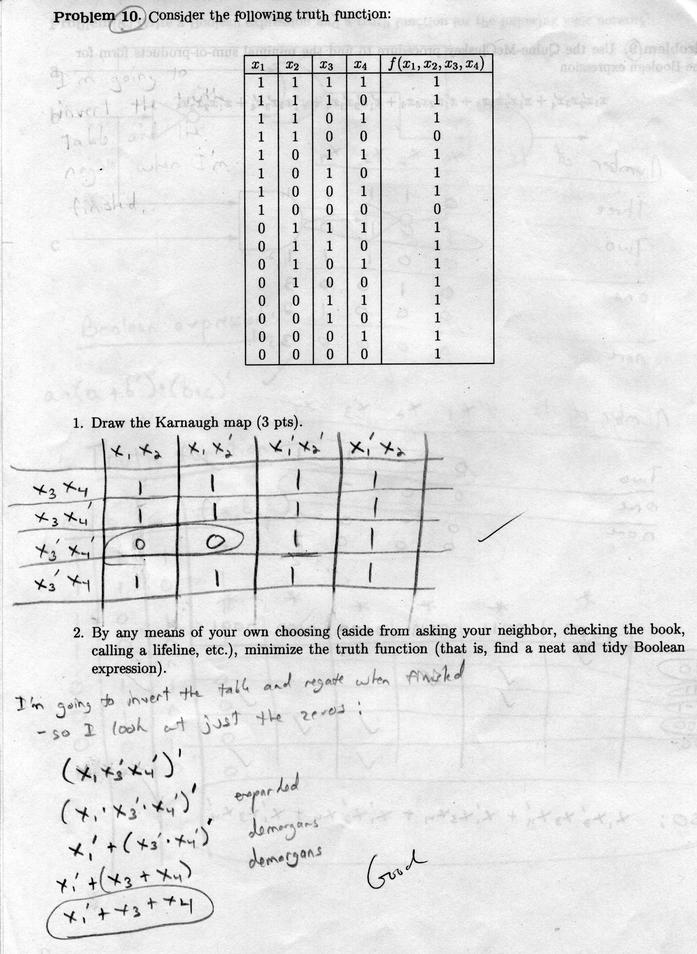 Problem 10. Consider the following truth function:
x1 x2 x3 x4 f(x1, x2, x3, x4)
1 1 1 1 1
1 1 1 0 1
1 1 0 1 1
1 1 0 0 0
1 0 1 1 1
1 0 1 0 1
1 0 0 1 1
1 0 0 0 0
0 1 1 1 1
0 1 1 0 1
0 1 0 1 1
0 1 0 0 1
0 0 1 1 1
0 0 1 0 1
0 0 0 1 1
0 0 0 0 1
I'm going to
invert the
table and
negate when I'm
finished.
1. Draw the Karnaugh map (3 pts).
x1 x2 x1 x2' x1' x2' x1' x2
x3 x4 1 1 1 1
x3 x4' 1 1 1 1
x3' x4' 0 0 1 1
x3' x4 1 1 1 1
2. By any means of your own choosing (aside from asking your neighbor, checking the book,
calling a lifeline, etc.), minimize the truth function (that is, find a neat and tidy Boolean
expression).
I'm going to invert the table and negate when finished
- so I look at just the zeros:
(x1 x3' x4')'
(x1 · x3' · x4')' expanded
x1' + (x3' · x4')' demorgans
x1' + (x3 + x4) demorgans
x1' + x3 + x4
Good